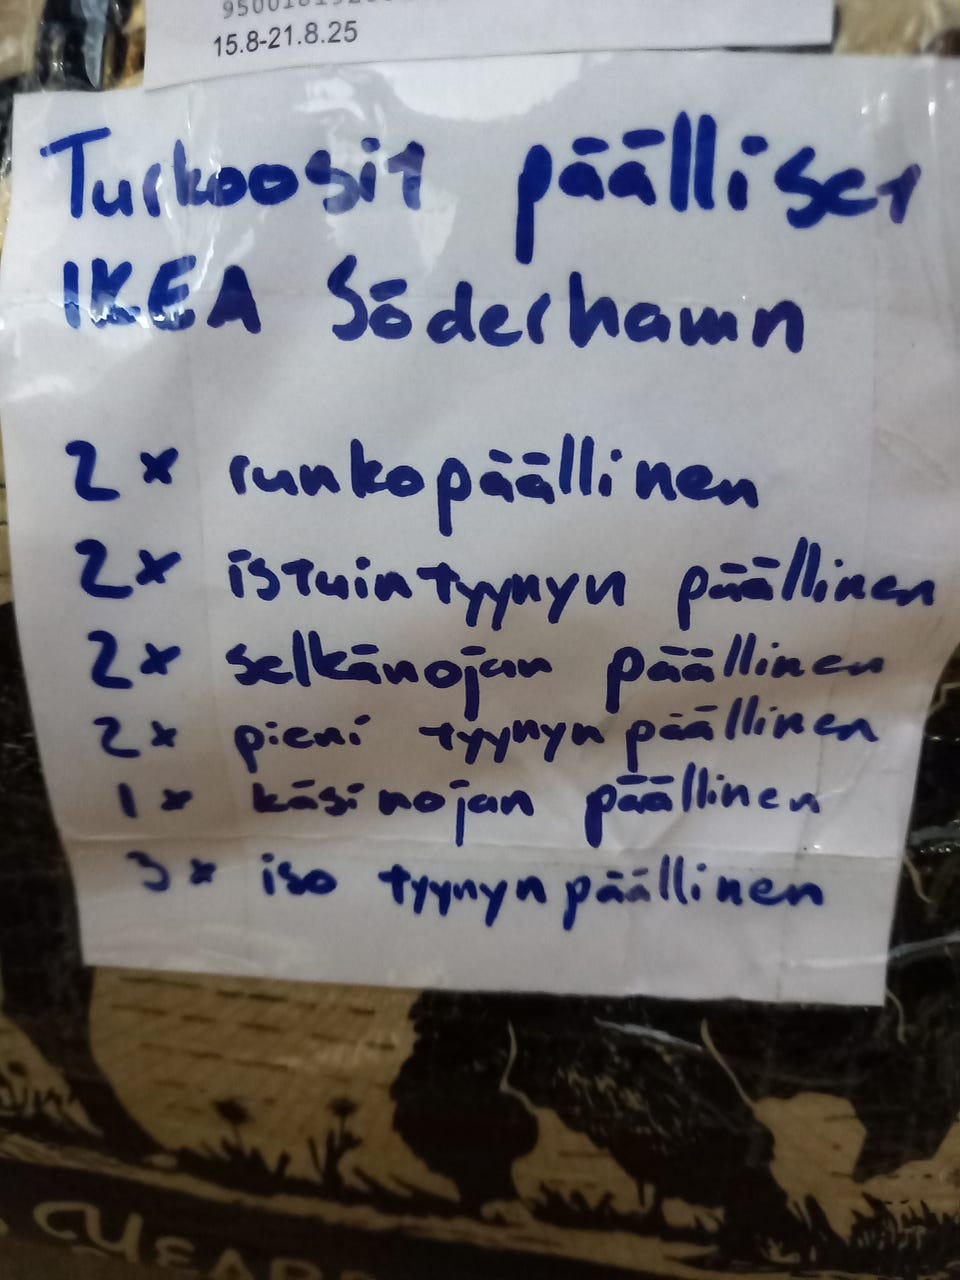 15.8-21.8.25
Turkoosit päälliset
IKEA Söderhamn
2x runkopäällinen
2x istuintyynyn päällinen
2x selkänojan päällinen
2x pieni tyynyn päällinen
1x käsinojan päällinen
3x iso tyynynpäällinen